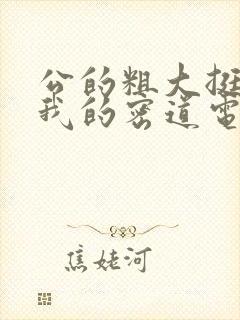 公的粗大挺
我的密道電
焦姥河